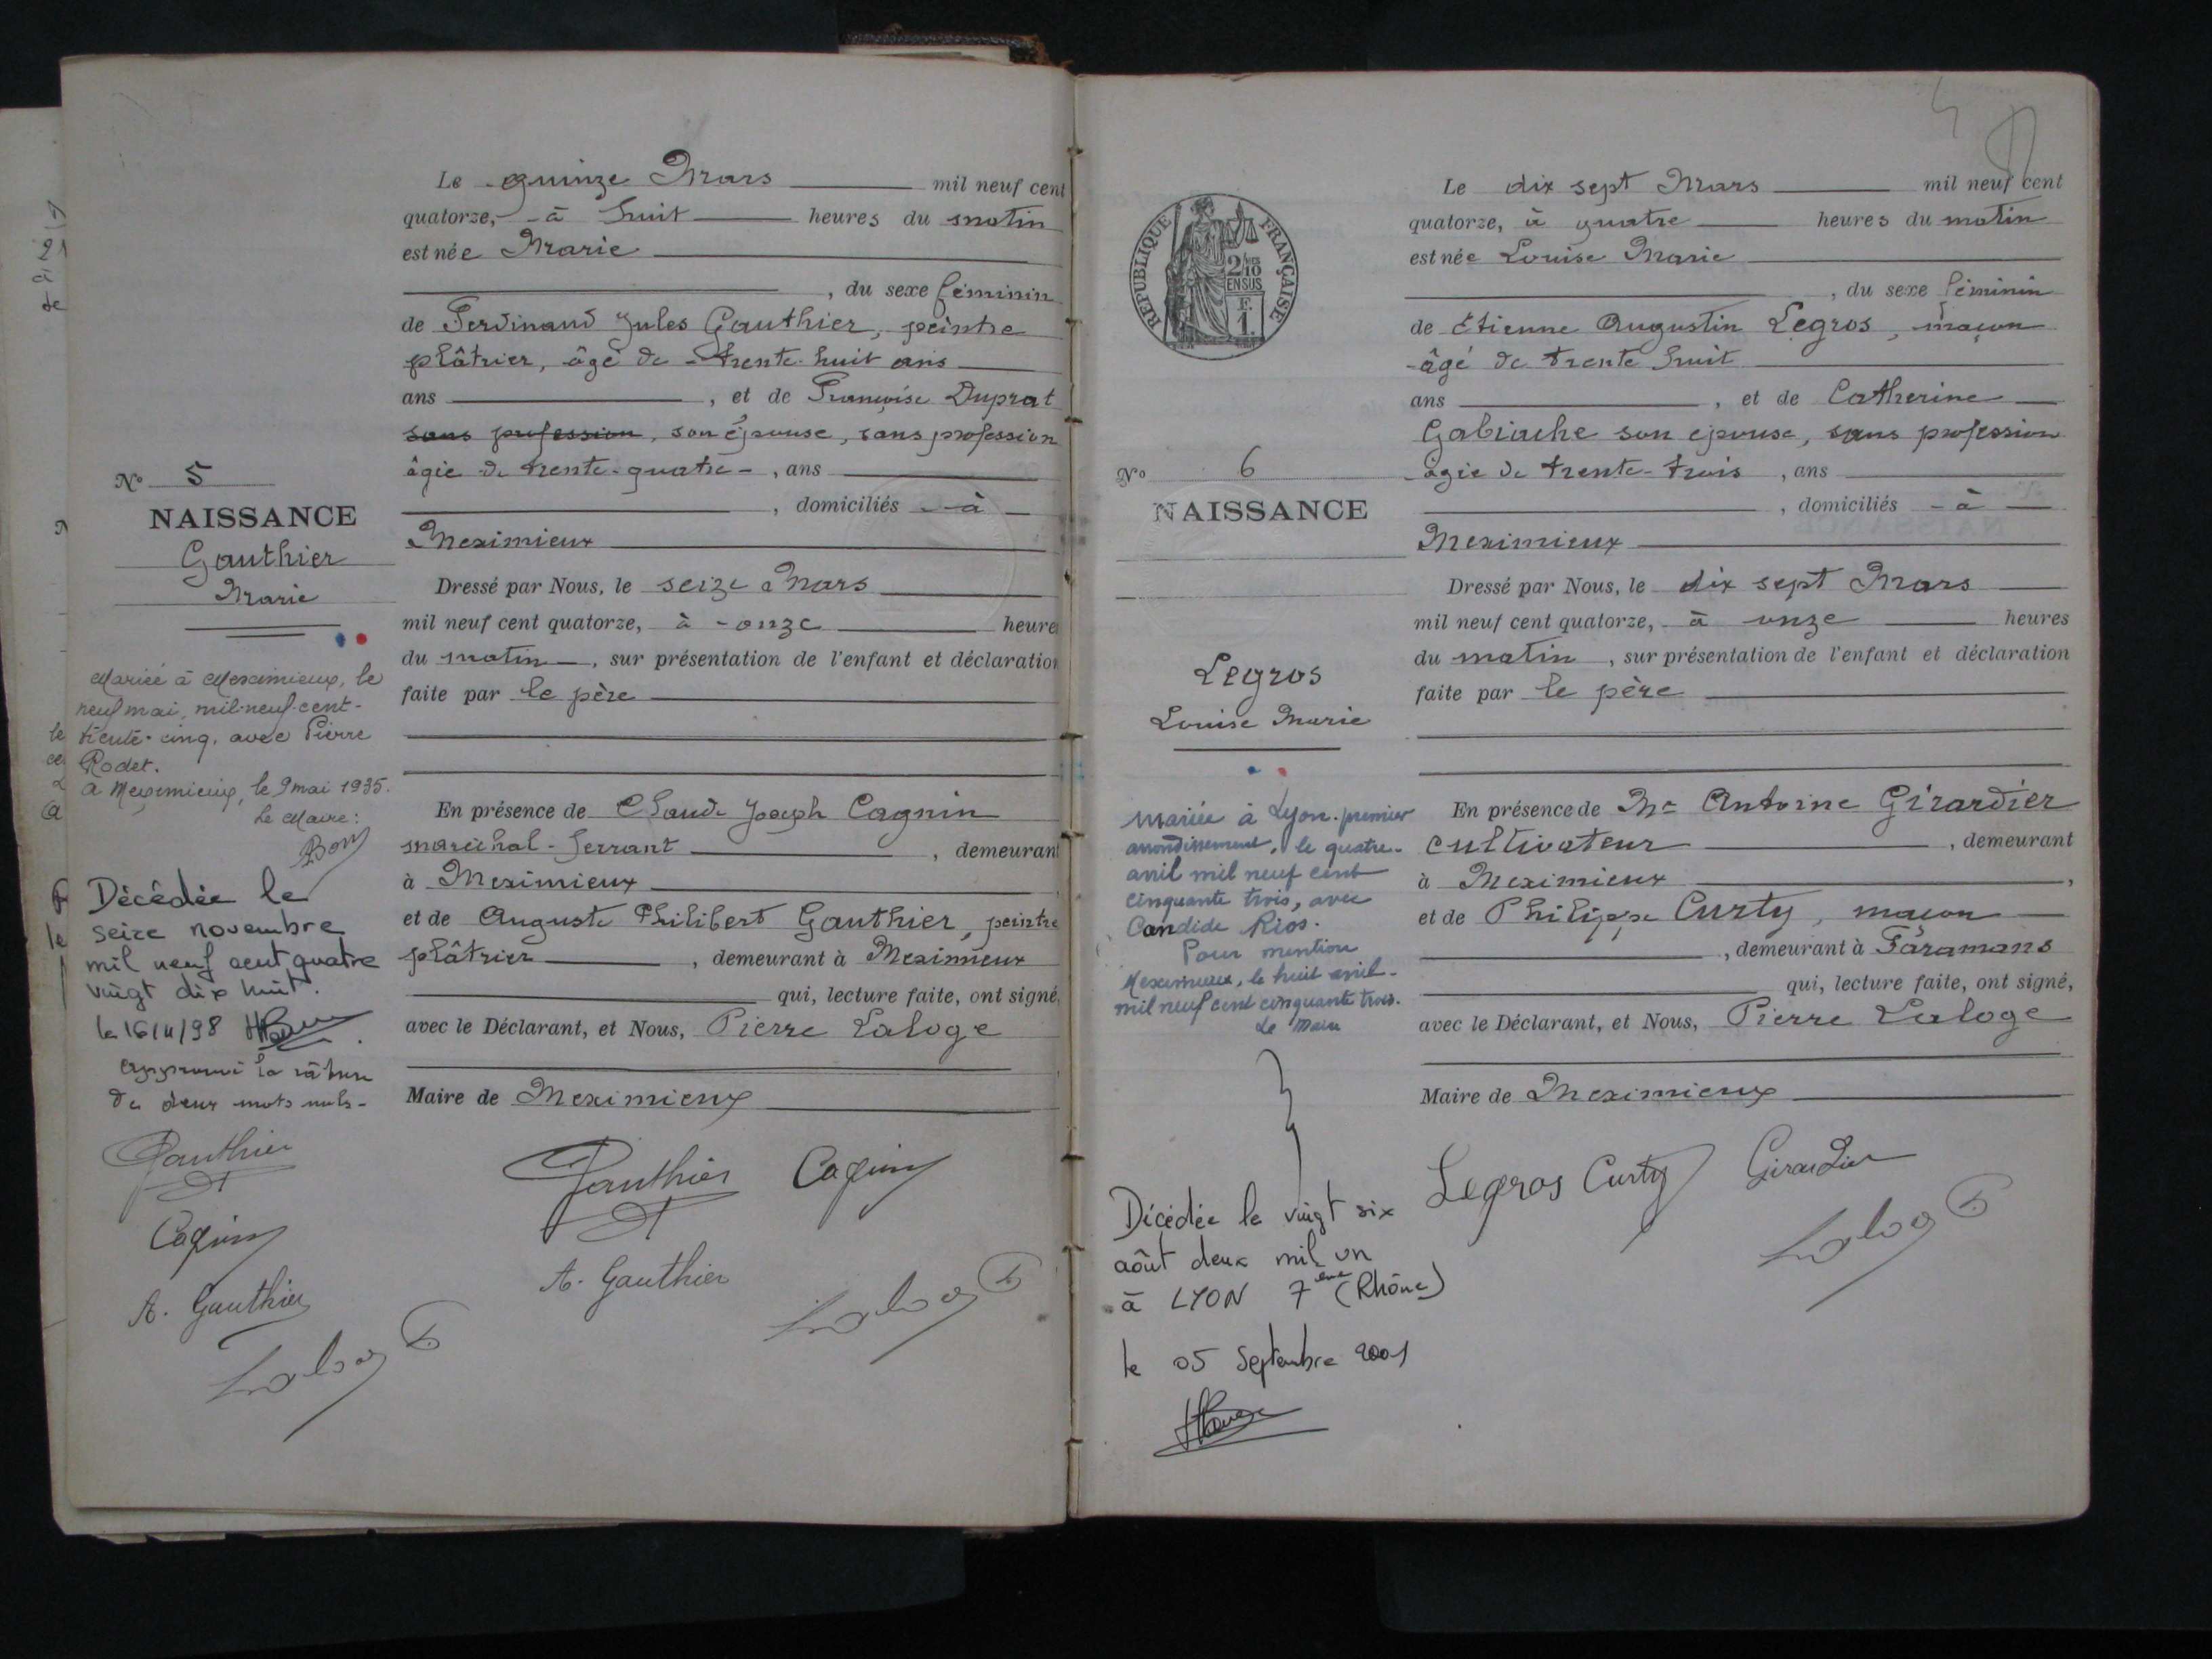 Le quinze Mars mil neuf cent
quatorze, à huit heures du matin
est née Marie
, du sexe féminin
de Ferdinand Jules Gauthier, peintre
plâtrier, âgé de trente-huit ans
ans , et de Françoise Duprat
sans profession, son épouse, sans profession
âgée de trente-quatre , ans
, domiciliés à
Meximieux
Dressé par Nous, le seize Mars
mil neuf cent quatorze, à onze heures
du matin , sur présentation de l'enfant et déclaration
faite par le père
En présence de Claude Joseph Cagnin
maréchal-ferrant , demeurant
à Meximieux
et de Auguste Philibert Gauthier, peintre
plâtrier , demeurant à Meximieux
qui, lecture faite, ont signé
avec le Déclarant, et Nous, Pierre Laloge
Maire de Meximieux
Gauthier Cagnin
A. Gauthier
No 5
NAISSANCE
Gauthier
Marie
Mariée à Meximieux, le
neuf mai, mil-neuf-cent-
trente-cinq, avec Pierre
Rodet.
A Meximieux, le 9 mai 1935.
Le Maire:
Décédée le
seize novembre
mil neuf cent quatre
vingt dix huit.
le 16/11/98
Approuvé la râture
de deux mots nuls-
Gauthier
Cagnin
A. Gauthier
RÉPUBLIQUE FRANÇAISE
2/10
EN SUS
F.
1.
Le dix sept Mars mil neuf cent
quatorze, à quatre heures du matin
est née Louise Marie
, du sexe féminin
de Etienne Augustin Legros, maçon
âgé de trente huit
ans , et de Catherine
Gabriache son épouse, sans profession
âgée de trente-trois , ans
, domiciliés à
Meximieux
Dressé par Nous, le dix sept Mars
mil neuf cent quatorze, à onze heures
du matin , sur présentation de l'enfant et déclaration
faite par le père
En présence de Mr Antoine Girardier
cultivateur , demeurant
à Meximieux ,
et de Philippe Curty, maçon
, demeurant à Faramans
qui, lecture faite, ont signé,
avec le Déclarant, et Nous, Pierre Laloge
Maire de Meximieux
Legros Curty Girardier
No 6
NAISSANCE
Legros
Louise Marie
Mariée à Lyon premier
arrondissement, le quatre
avril mil neuf cent
cinquante trois, avec
Candide Rios.
Pour mention
Meximieux, le huit avril
mil neuf cent cinquante trois.
Le Maire
Décédée le vingt six
août deux mil un
à LYON 7ème (Rhône)
le 05 Septembre 2001